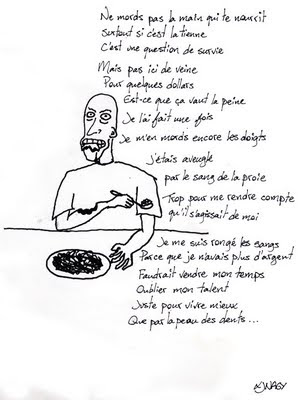 Ne mords pas la main qui te nourrit
Surtout si c'est la tienne
C'est une question de survie
Mais pas ici de veine
Pour quelques dollars
Est-ce que ça vaut la peine
Je l'ai fait une fois
Je m'en mords encore les doigts
j'étais aveuglé
par le sang de la proie
Trop pour me rendre compte
qu'il s'agissait de moi
Je me suis rongé les sangs
Parce que je n'avais plus d'argent
Faudrait vendre mon temps
Oublier mon talent
Juste pour vivre mieux
Que par la peau des dents...
NAGY